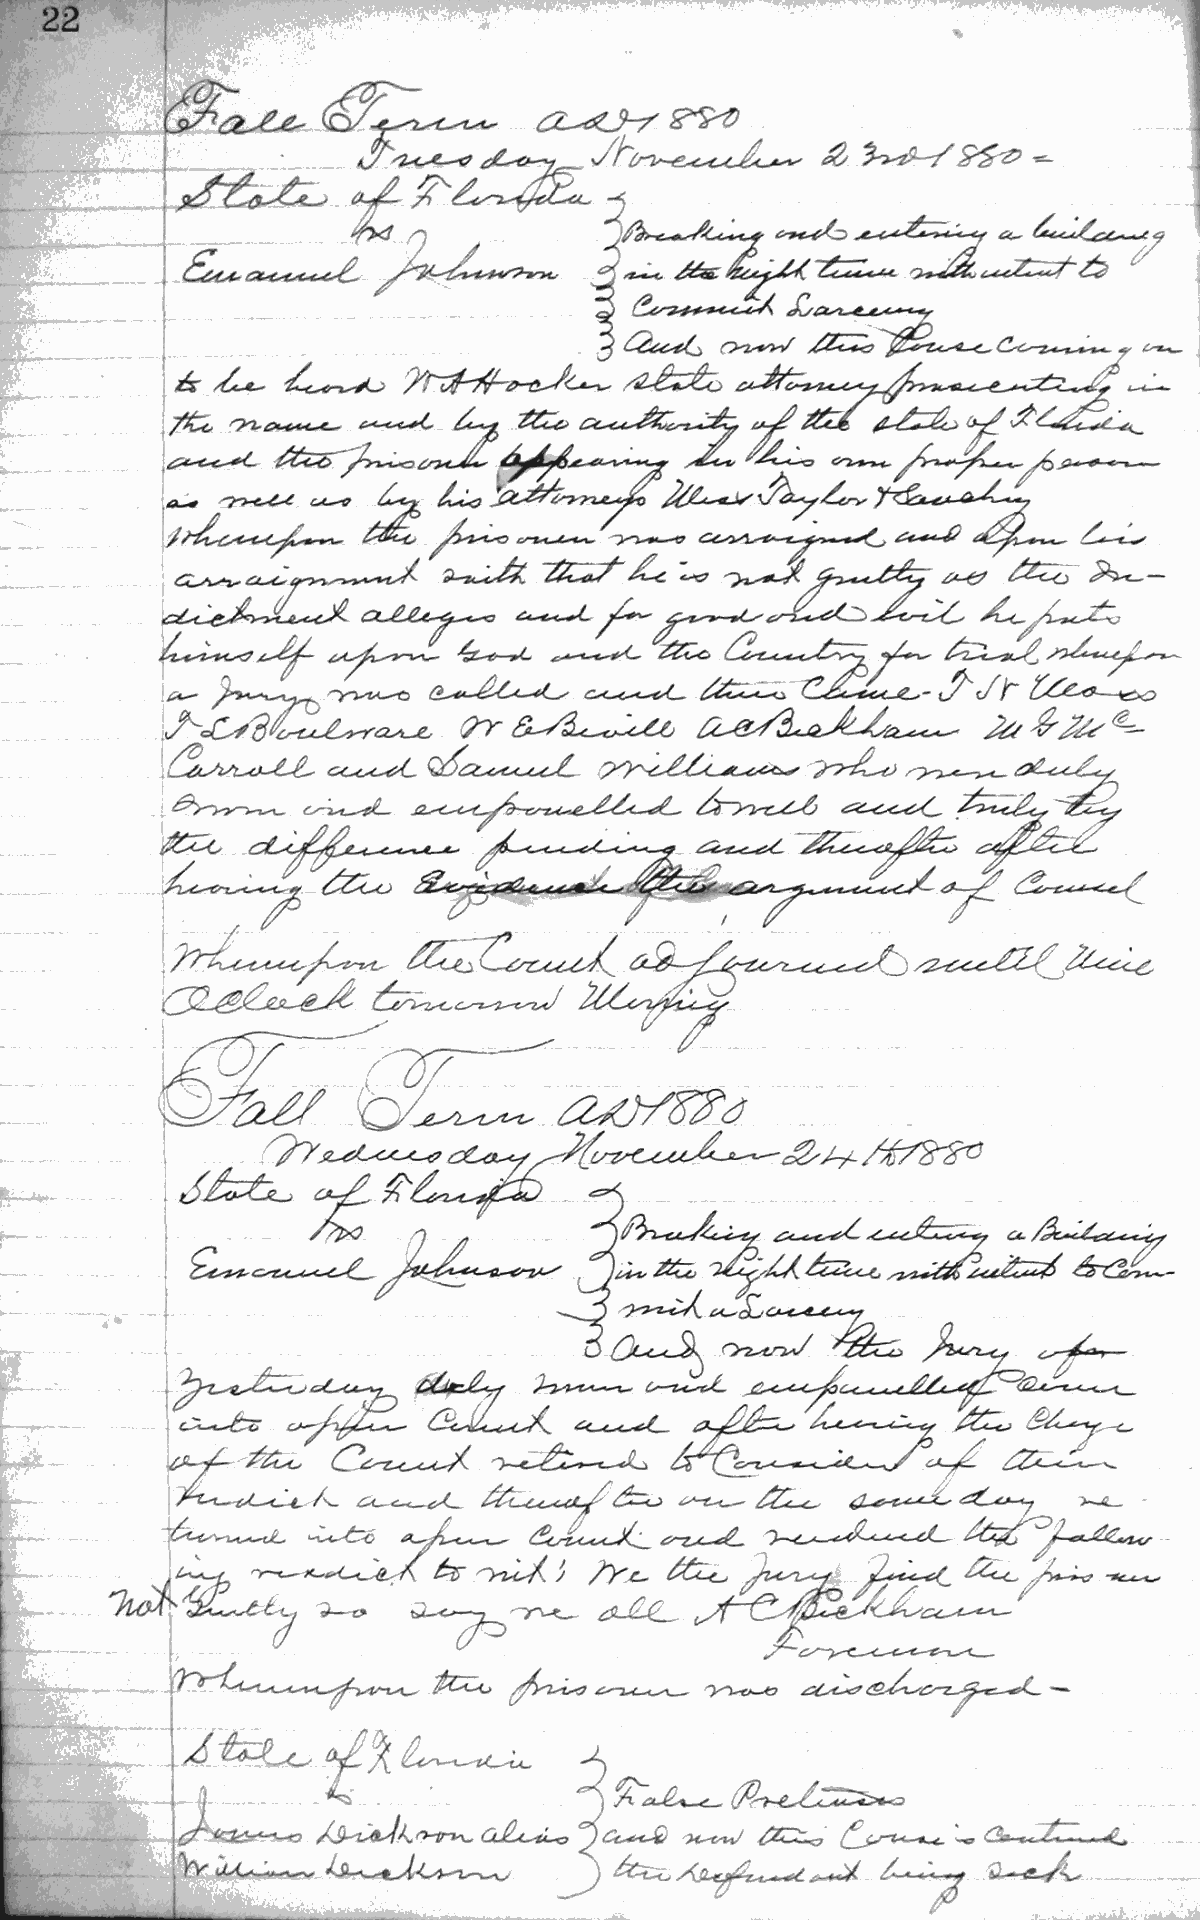 22
Fall Term AD 1880
Tuesday November 23rd 1880 =
State of Florida
vs
Breaking and entering a building
Emanuel Johnson
in the night time with intent to
Commit Larceny
And now this Cause coming on
to be heard W A Hocker state attorney prosecuting in
the name and by the authority of the state of Florida
and the prisoner appearing in his own proper person
as well as by his attorneys Taylor &
Whereupon the prisoner was arraigned and upon his
arraignment saith that he is not guilty as the In-
dictment alleges and for good and evil he puts
himself upon God and the Country for trial whereupon
a Jury was called and there Came - T N
T L Boulware W E Bevill A C Beckham M G Mc
Carroll and Samuel Williams who were duly
sworn and empanelled to well and truly try
the difference pending and thereafter after
hearing the Evidence the argument of Counsel
Whereupon the Court adjourned until Nine
Oclock tomorrow Morning
Fall Term AD 1880
Wednesday November 24th 1880
State of Florida
vs
Breaking and entering a Building
Emanuel Johnson
in the Night time with intent to Com-
mit a Larceny
And now the Jury of
Yesterday duly sworn and empanelled Come
into open Court and after hearing the Charge
of the Court retired to Consider of their
verdict and thereafter on the same day re
turned into open Court and rendered the follow
ing verdict to wit; We the Jury find the prisoner
Not Guilty so say we all A C Beckham
Foreman
Whereupon the prisoner was discharged -
State of Florida
vs
False Pretenses
James Dickson alias
and now this Cause is Continued
William Dickson
the Defendant being Sick